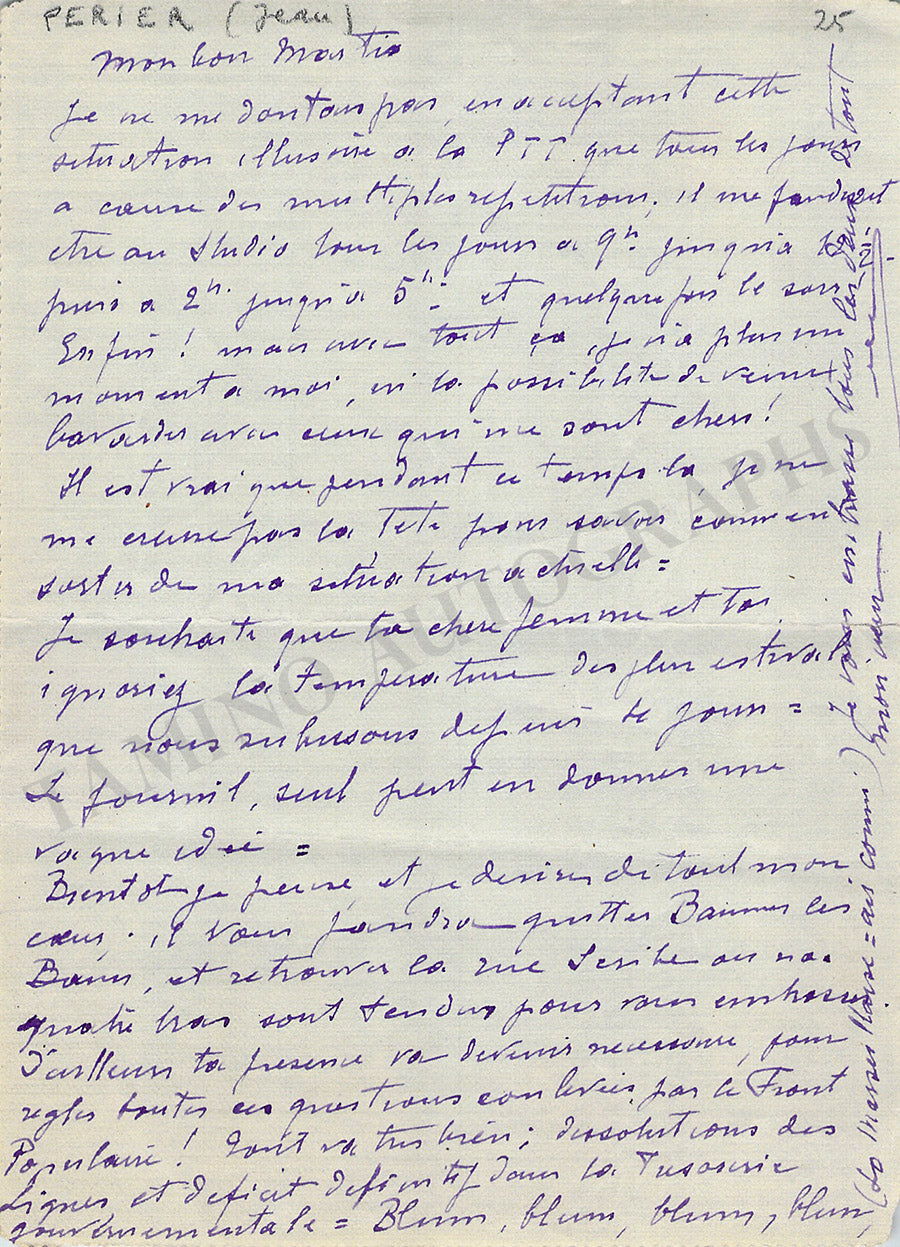 PERIER (Jean)
25
Mon bon Martin
Je ne me doutais pas, en acceptant cette
situation illusoire a la PTT que tous les jours
a cause des multiples repetitions, il me faudrait
etre au Studio tous les jours a 9h. jusqu'a
puis a 2h. jusqu'a 5h. et quelquefois le soir
Enfin ! mais avec tout ça, je n'ai plus un
moment a moi, ni la possibilité de venir
bavarder avec ceux qui me sont chers !
Il est vrai que pendant ce temps la je ne
me creuse pas la Tete pour savoir comment
sortir de ma situation actuelle =
Je souhaite que ta chere femme et toi
ignoriez la temperature des plus estivales
que nous subissons depuis de jours =
Le journal, seul peut en donner une
vague idée =
Bientot je pense, et je desire de tout mon
cœur, il vous faudra quitter Baumes les
Bains, et retrouver la rue Scribe ou nos
quatre bras sont tendus pour vous embrasser
D'ailleurs ta presence va devenir necessaire, pour
regler toutes ces questions soulevées par le Front
Populaire ! Tout va tres bien ; dissolutions des
Ligues et deficit definitif dans la Tresorerie
gouvernementale = Blum, blum, blum, blum,
(La Marseillaise = air connu)
Je vous embrasse tous les deux de tout
mon cœur
TAMINO AUTOGRAPHS